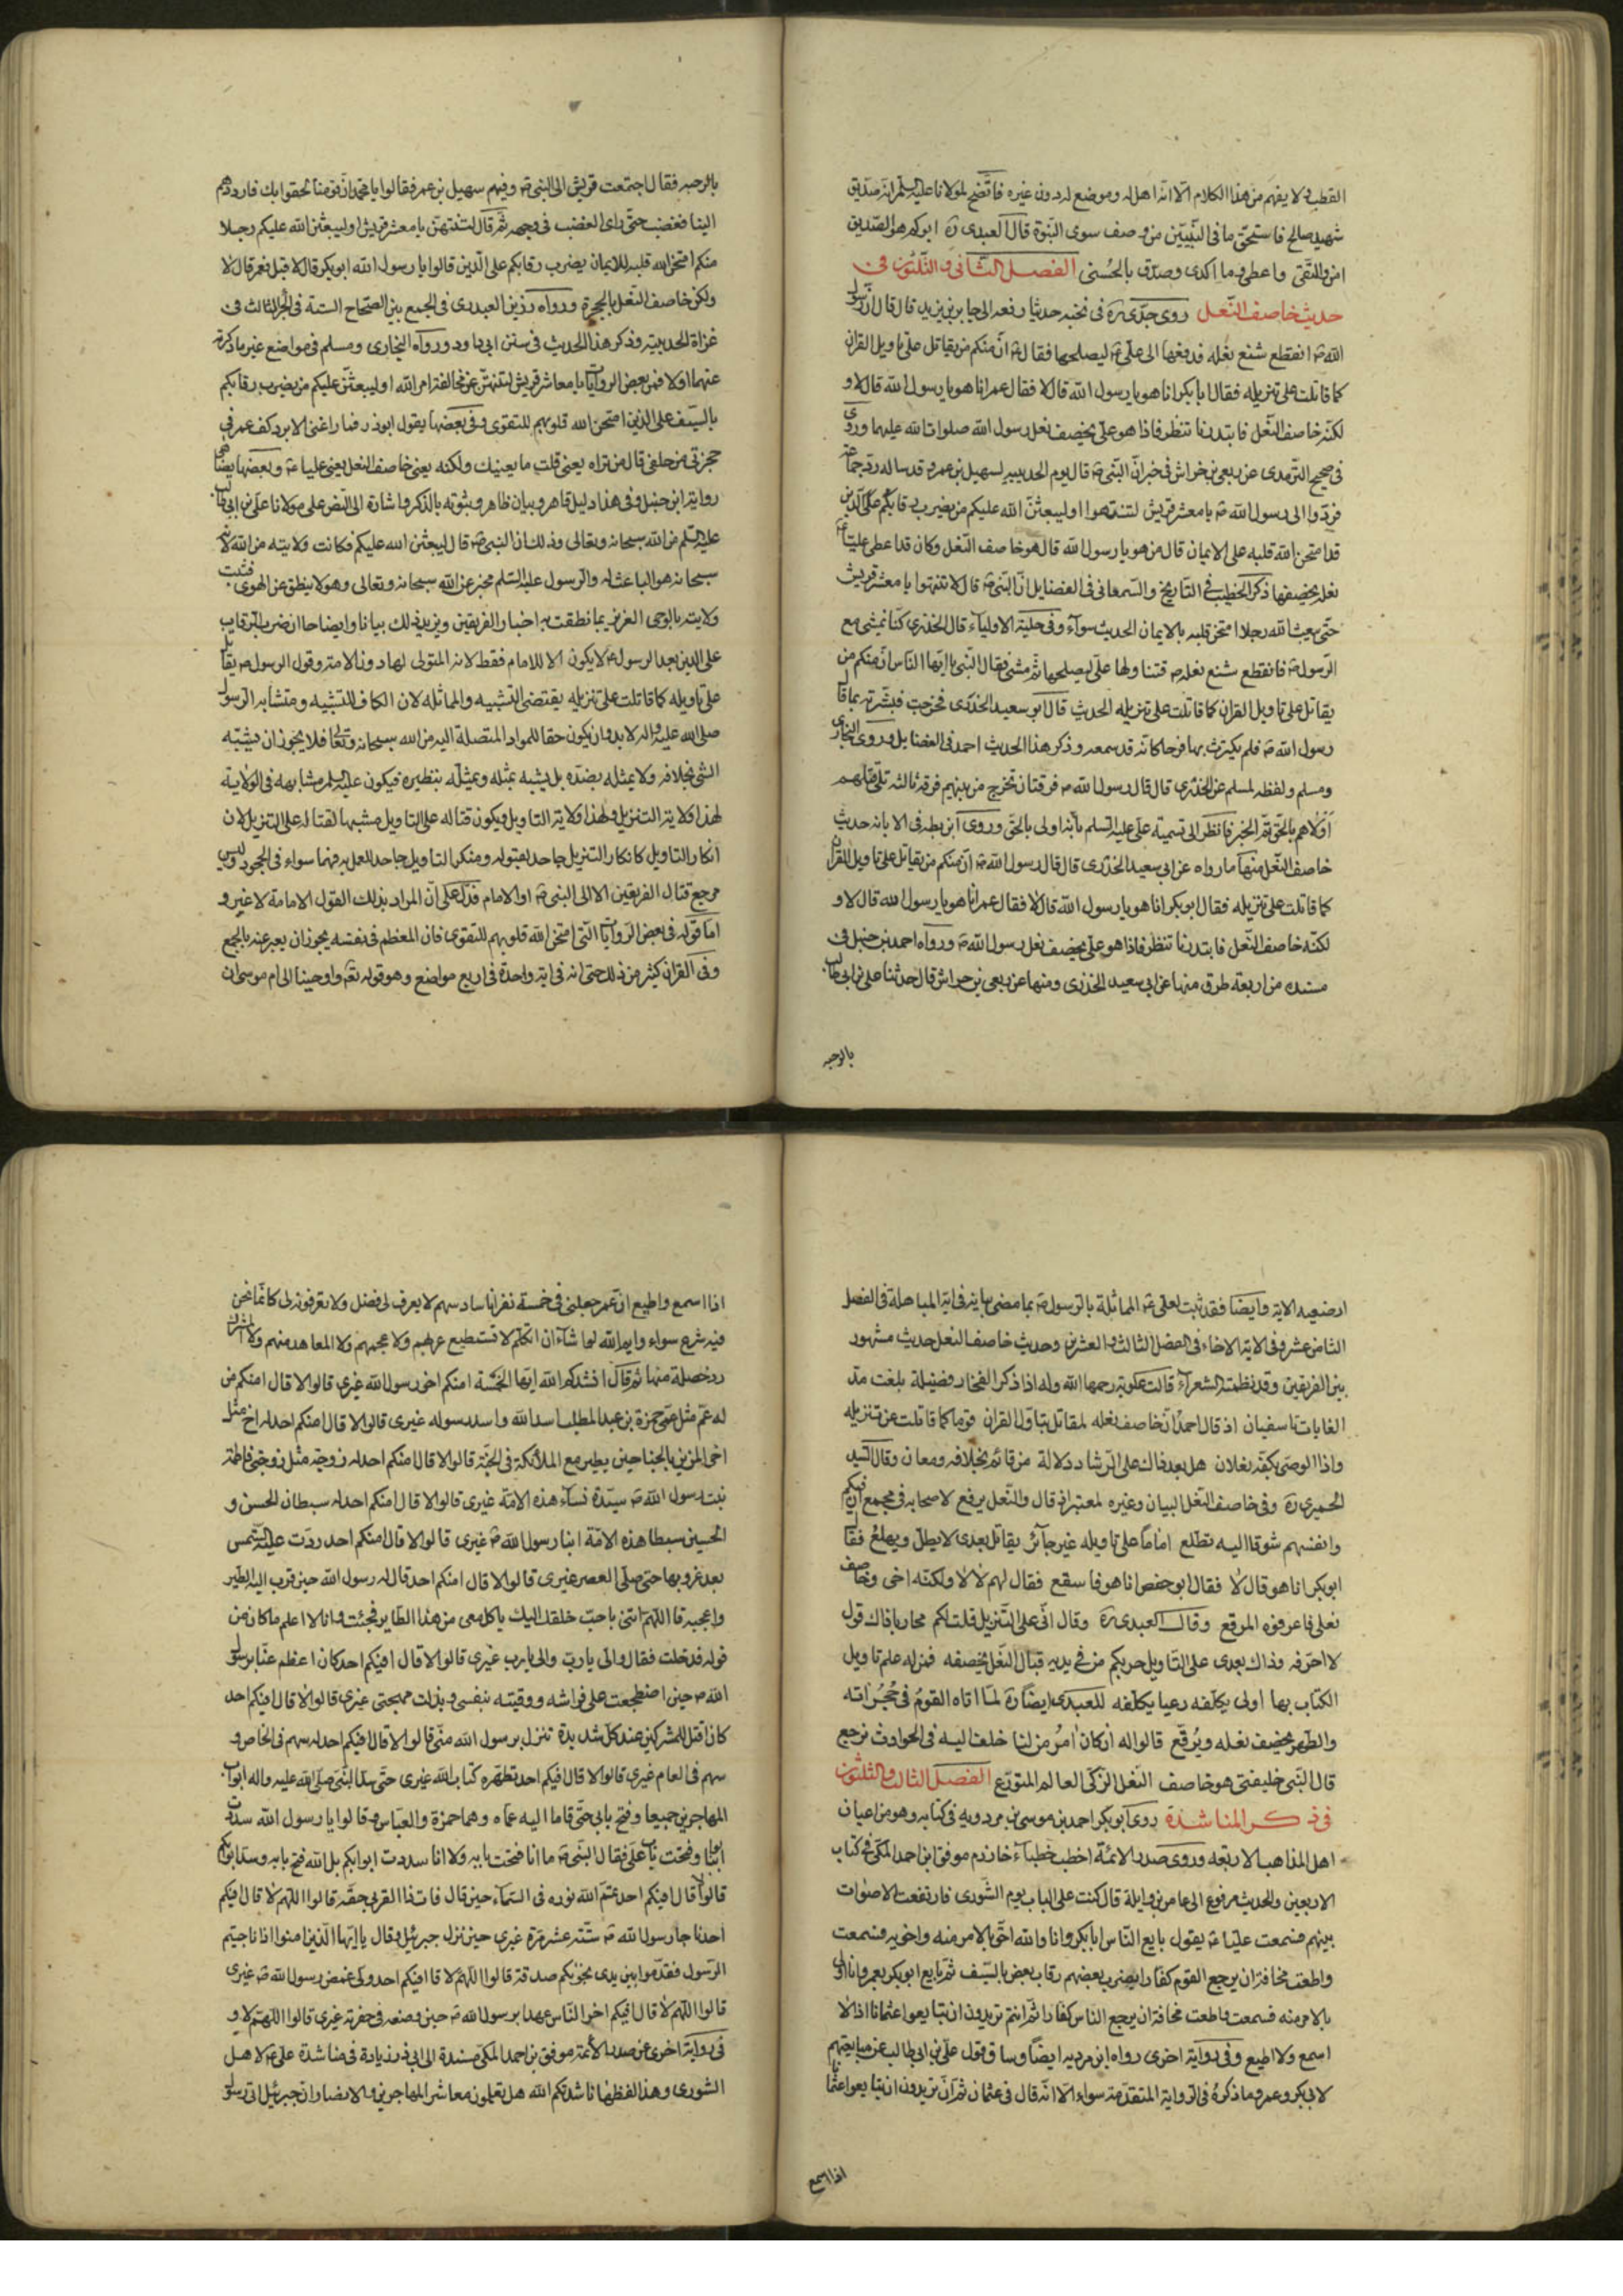 القطب ولا يفهم من هذا الكلام الا انه اهل له وموضع له دون غيره فاتضح لمولانا عليه السلم انه صديق
شهيد صالح فاستحق ما في النبيين من وصف سوى النبوة قال العبدى ره ابوكم هو الصديق
امن واتقى واعطى وما اكدى وصدق بالحسنى الفصل الثانى و الثلثون فى
حديث خاصف النعل روى جدى ره فى نخبه حديثا رفعه الى جابر بن يزيد قال قال رسول
الله ص انقطع شسع نعله فدفعها الى على ع ليصلحها فقال ص ان منكم من يقاتل على تاويل القران
كما قاتلت على تنزيله فقال ابا بكر انا هو يا رسول الله قال لا فقال عمر انا هو يا رسول الله قال لا و
لكنه خاصف النعل فابتدرنا ننظر فاذا هو على يخصف نعل رسول الله صلوات الله عليهما وروى
فى صحيح الترمدى عن ربعى بن خراش فى خبر ان النبى ص قال يوم الحديبيه لسهيل بن عمرو قد ساله رد جماعة
فردوا الى رسول الله ص يا معشر قريش لتنتهوا او ليبعثن الله عليكم من يضرب رقابكم على الدين
قد امتحن الله قلبه على الايمان قال من هو يا رسول الله قال هو خاصف النعل وكان قد اعطى عليا ع
نعله يخصفها ذكر الخطيب فى التاريخ والسمعانى فى الفضايل ان النبى ص قال لا تنتهوا يا معشر قريش
حتى يبعث الله رجلا امتحن قلبه بالايمان الحديث سواء وفى حلية الاولياء قال الخدرى كنا نمشى مع
الرسول ص فانقطع شسع نعله ص فتناولها على ليصلحها ثم مشى فقال النبى يا ايها الناس ان منكم من
يقاتل على تاويل القران كما قاتلت على تنزيله الحديث قال ابو سعيد الخدرى فخرجت فبشرته بما قال
رسول الله ص فلم يكترث بها فرحا كانه قد سمعه وذكر هذا الحديث احمد فى الفضايل وروى البخارى
ومسلم ولفظه لمسلم عن الخدرى قال قال رسول الله ص فرقتان تخرج من بينهم فرقة ثالثه تلى قتلهم
اولاهم بالحق تم الخبر فانظر الى تسمية على عليه السلم بانه اولى بالحق وروى ابن بطه فى الابانه حديث
خاصف النعل منها ما رواه عن ابى سعيد الخدرى قال قال رسول الله ص ان منكم من يقاتل على تاويل القران
كما قاتلت على تنزيله فقال ابو بكر انا هو يا رسول الله قال لا فقال عمر انا هو يا رسول الله قال لا و
لكنه خاصف النعل فابتدرنا ننظر فاذا هو على يخصف نعل رسول الله ص ورواه احمد بن حنبل فى
مسنده من اربعة طرق منها عن ابى سعيد الخدرى ومنها عن ربعى بن حراش قال حدثنا على بن ابى طالب
بالرحبه
بالرحبه فقال اجتمعت قريش الى النبى ص وفيهم سهيل بن عمر فقالوا يا محمد ان قومنا لحقوا بك فارددهم
الينا فغضب حتى راى الغضب فى وجهه ثم قال لتنتهن يا معشر قريش او ليبعثن الله عليكم رجلا
منكم امتحن الله قلبه للايمان يضرب رقابكم على الدين قالوا يا رسول الله ابو بكر قال لا قيل فعمر قال لا
ولكن خاصف النعل بالحجرة ورواه رزين العبدرى فى الجمع بين الصحاح الستة فى الجزء الثالث فى
غزاة الحديبيه وذكر هذا الحديث فى سنن ابى داود ورواه البخارى ومسلم فى مواضع غير ما ذكرته
عنهما اولا فمن بعض الروايات يا معاشر قريش لتنتهن عن مخالفة امر الله او ليبعثن عليكم من يضرب رقابكم
بالسيف على الدين امتحن الله قلوبهم للتقوى وفى بعضها يقول ابوذر فما راعنى الا برد كف عمر فى
حجزتى من خلفى قال من تراه يعنى قلت ما يعنيك ولكنه يعنى خاصف النعل يعنى عليا ع وبعضها ايضا
رواية ابن حنبل وفى هذا دليل قاهر وبيان ظاهر وبثوته بالذكر فاشارة الى النص على مولانا على بن ابى طالب
عليه السلم من الله سبحانه وتعالى وذلك ان النبى ص قال ليبعثن الله عليكم فكانت ولايته من الله لانه
سبحانه هو الباعث له والرسول عليه السلم مخبر عن الله سبحانه وتعالى وهو لا ينطق عن الهوى فثبت
ولايته بالوحى العزيز بما نطقت به اخبار الفريقين ويزيد ذلك بيانا وايضاحا ان ضرب الرقاب
على الدين بعد الرسول ص لا يكون الا للامام فقط لانه المتولى لها دون الامة وقول الرسول ص يقاتل
على تاويله كما قاتلت على تنزيله يقتضى التشبيه والمماثله لان الكاف للتشبيه ومتشابه الرسول
صلى الله عليه واله لا بد وان يكون حقا للمواد المتصلة اليه من الله سبحانه وتعالى فلا يجوز ان يشبه
الشئ بخلافه ولا يمثله بضده بل يشبه بمثله ويمثله بنظيره فيكون عليه السلم مشابهه فى الولاية
لهذا ولاية التنزيل ولهذا ولاية التاويل ويكون قتاله على التاويل مشبها لقتاله على التنزيل لان
انكار التاويل كانكار التنزيل جاحد لقبوله ومنكر التاويل جاحد للعمل به فهما سواء فى الجحود وليس
مرجع قتال الفريقين الا الى النبى ص او الامام فدل على ان المراد بذلك القول الامامة لا غير و
اما قوله فى بعض الروايات التى امتحن الله قلوبهم للتقوى فان المعظم فى نفسه يجوز ان يعبر عنه بالجمع
وفى القران كثير من ذلك حتى انه فى اية واحدة فى اربع مواضع وهو قوله تع واوحينا الى ام موسى ان
ارضعيه الاية وايضا فقد ثبت لعلى ع المماثلة بالرسول ص بما مضى بيانه فى اية المباهلة فى الفصل
الثامن عشر وفى الاية الاخاء فى الفصل الثالث والعشرين وحديث خاصف النعل حديث مشهور
بين الفريقين وقد نظمته الشعراء قالت علوية رحمها الله وله اذا ذكر الفخار فضيلة بلغت مد
الغايات يا سفيان اذ قال احمد ان خاصف نعله لمقاتل بتاول القران قوما كما قاتلت عن تنزيله
واذا الوصى بكفه نعلان هل بعد ذاك على الرشاد دلالة من قائم بخلافه ومعان وقال السيد
الحميرى ره وفى خاصف النعل البيان وغيره لمعتبر اذ قال والنعل يرفع لاصحابه فى مجمع ان فيكم
وانفسهم شوقا اليه تطلع اماما على تاويله غير جائر يقاتل بعدى لا يطل ويهلع فقال
ابو بكر انا هو قال لا فقال ابو حفص انا هو فاسقع فقال لهم لا لا ولكنه اخى وخاصف
نعلى فاعرفوه المرقع وقال العبدى ره وقال انى على التنزيل قلت لكم محاربا ذاك قول
لا احرفه وذاك بعدى على التاويل حربكم من فى يديه قبال النعل يخصفه فمن له علم تاويل
الكتاب بها اولى يكلفه رعيا يكلفه للعبدى ايضا ره لما اتاه القوم فى حجراته
والطهر يخصف نعله ويرقع قالوا له ان كان امر من لنا خلف اليه فى الحوادث نرجع
قال النبى خليفتى هو خاصف النعل الزكى العالم المتورع الفصل الثالث والثلثون
فى ذكر المناشدة روى ابو بكر احمد بن موسى بن مردويه فى كتابه وهو من اعيان
اهل المذاهب الاربعه وروى صدر الائمة اخطب خطباء خوارزم موفق ابن احمد المكى فى كتاب
الاربعين والحديث مرفوع الى عامر بن وايلة قال كنت على الباب يوم الشورى فارتفعت الاصوات
بينهم فسمعت عليا ع يقول بايع الناس ابا بكر وانا والله احق بالامر منه واخرى به فسمعت
واطعت مخافة ان يرجع القوم كفارا يضرب بعضهم رقاب بعض بالسيف ثم بايع ابو بكر لعمر وانا اولى
بالامر منه فسمعت واطعت مخافة ان يرجع الناس كفارا ثم انتم تريدون ان تبايعوا عثمانا اذا لا
اسمع ولا اطيع وفى رواية اخرى رواه ابن مرديه ايضا وساق قول على بن ابى طالب عن مبايعتهم
لابى بكر وعمر وما ذكره فى الرواية المتقدمة سواء الا انه قال فى عثمان ثم ان تريدون ان تبايعوا عثمانا
اذا اسمع
اذا اسمع واطيع ان عمر جعلنى فى خمسة نفر انا سادسهم لا يعرف لى فضل ولا يعرفونه لى كانما نحن
فيه شرع سواء وايم الله لما شاء ان اتكلم لا تستطيع عربهم ولا عجمهم ولا المعاهد منهم ولا المشرك
رد خصلة منها ثم قال انشدكم الله ايها الخمسة امنكم اخو رسول الله غيرى قالوا لا قال امنكم من
له عم مثل عمى حمزة بن عبد المطلب اسد الله واسد رسوله غيرى قالوا لا قال امنكم احد له اخ مثل
اخى المزين بالجناحين يطير مع الملائكة فى الجنة قالوا لا قال منكم احد له زوجة مثل زوجتى فاطمة
بنت رسول الله ص سيدة نساء هذه الامة غيرى قالوا لا قال امنكم احد له سبطان الحسن و
الحسين سبطا هذه الامة ابنا رسول الله ص غيرى قالوا لا قال امنكم احد ردت عليه الشمس
بعد غروبها حتى صلى العصر غيرى قالوا لا قال امنكم احد قال له رسول الله حين قرب اليه الطير
واعجبه قا اللهم ائتنى باحب خلقك اليك ياكل معى من هذا الطاير فجئت وانا لا اعلم ما كان من
قوله فدخلت فقال والى يا رب والى يا رب غيرى قالوا لا قال افيكم احد كان اعظم عنا برسول
الله ص حين اضطجعت على فراشه ووقيته بنفسى وبذلت مهجتى غيرى قالوا لا قال افيكم احد
كان اقتل للمشركين عند كل شديدة تنزل برسول الله منى قالوا لا قال افيكم احد له سهم فى الخاص و
سهم فى العام غيرى قالوا لا قال افيكم احد تطهره كتاب الله غيرى حتى سد النبى صلى الله عليه واله ابواب
المهاجرين جميعا وفتح بابى حتى قاما اليه عماه وهما حمزة والعباس وقالوا يا رسول الله سددت
ابوابنا وفتحت باب على فقال النبى ص ما انا فتحت بابه ولا انا سددت ابوابكم بل الله فتح بابه وسد ابوابكم
قالوا لا قال افيكم احد تمم الله نوره فى السماء حين قال فات ذا القربى حقه قالوا اللهم لا قال افيكم
احد ناجا رسول الله ص ستة عشر مرة غيرى حين نزل جبرئيل وقال يا ايها الذين امنوا اذا ناجيتم
الرسول فقدموا بين يدى نجويكم صدقة قالوا اللهم لا قا افيكم احد ولى غمض رسول الله ص غيرى
قالوا اللهم لا قال افيكم اخر الناس عهدا برسول الله ص حين وضعه فى حفرته غيرى قالوا اللهم لا و
فى رواية اخرى عن صدر الائمة موفق بن احمد المكى مسندة الى ابى ذر زيادة فى مناشدة على ع لاهل
الشورى وهذا لفظها ناشدتكم الله هل تعلمون معاشر المهاجرين والانصار ان جبرئيل اتى رسول